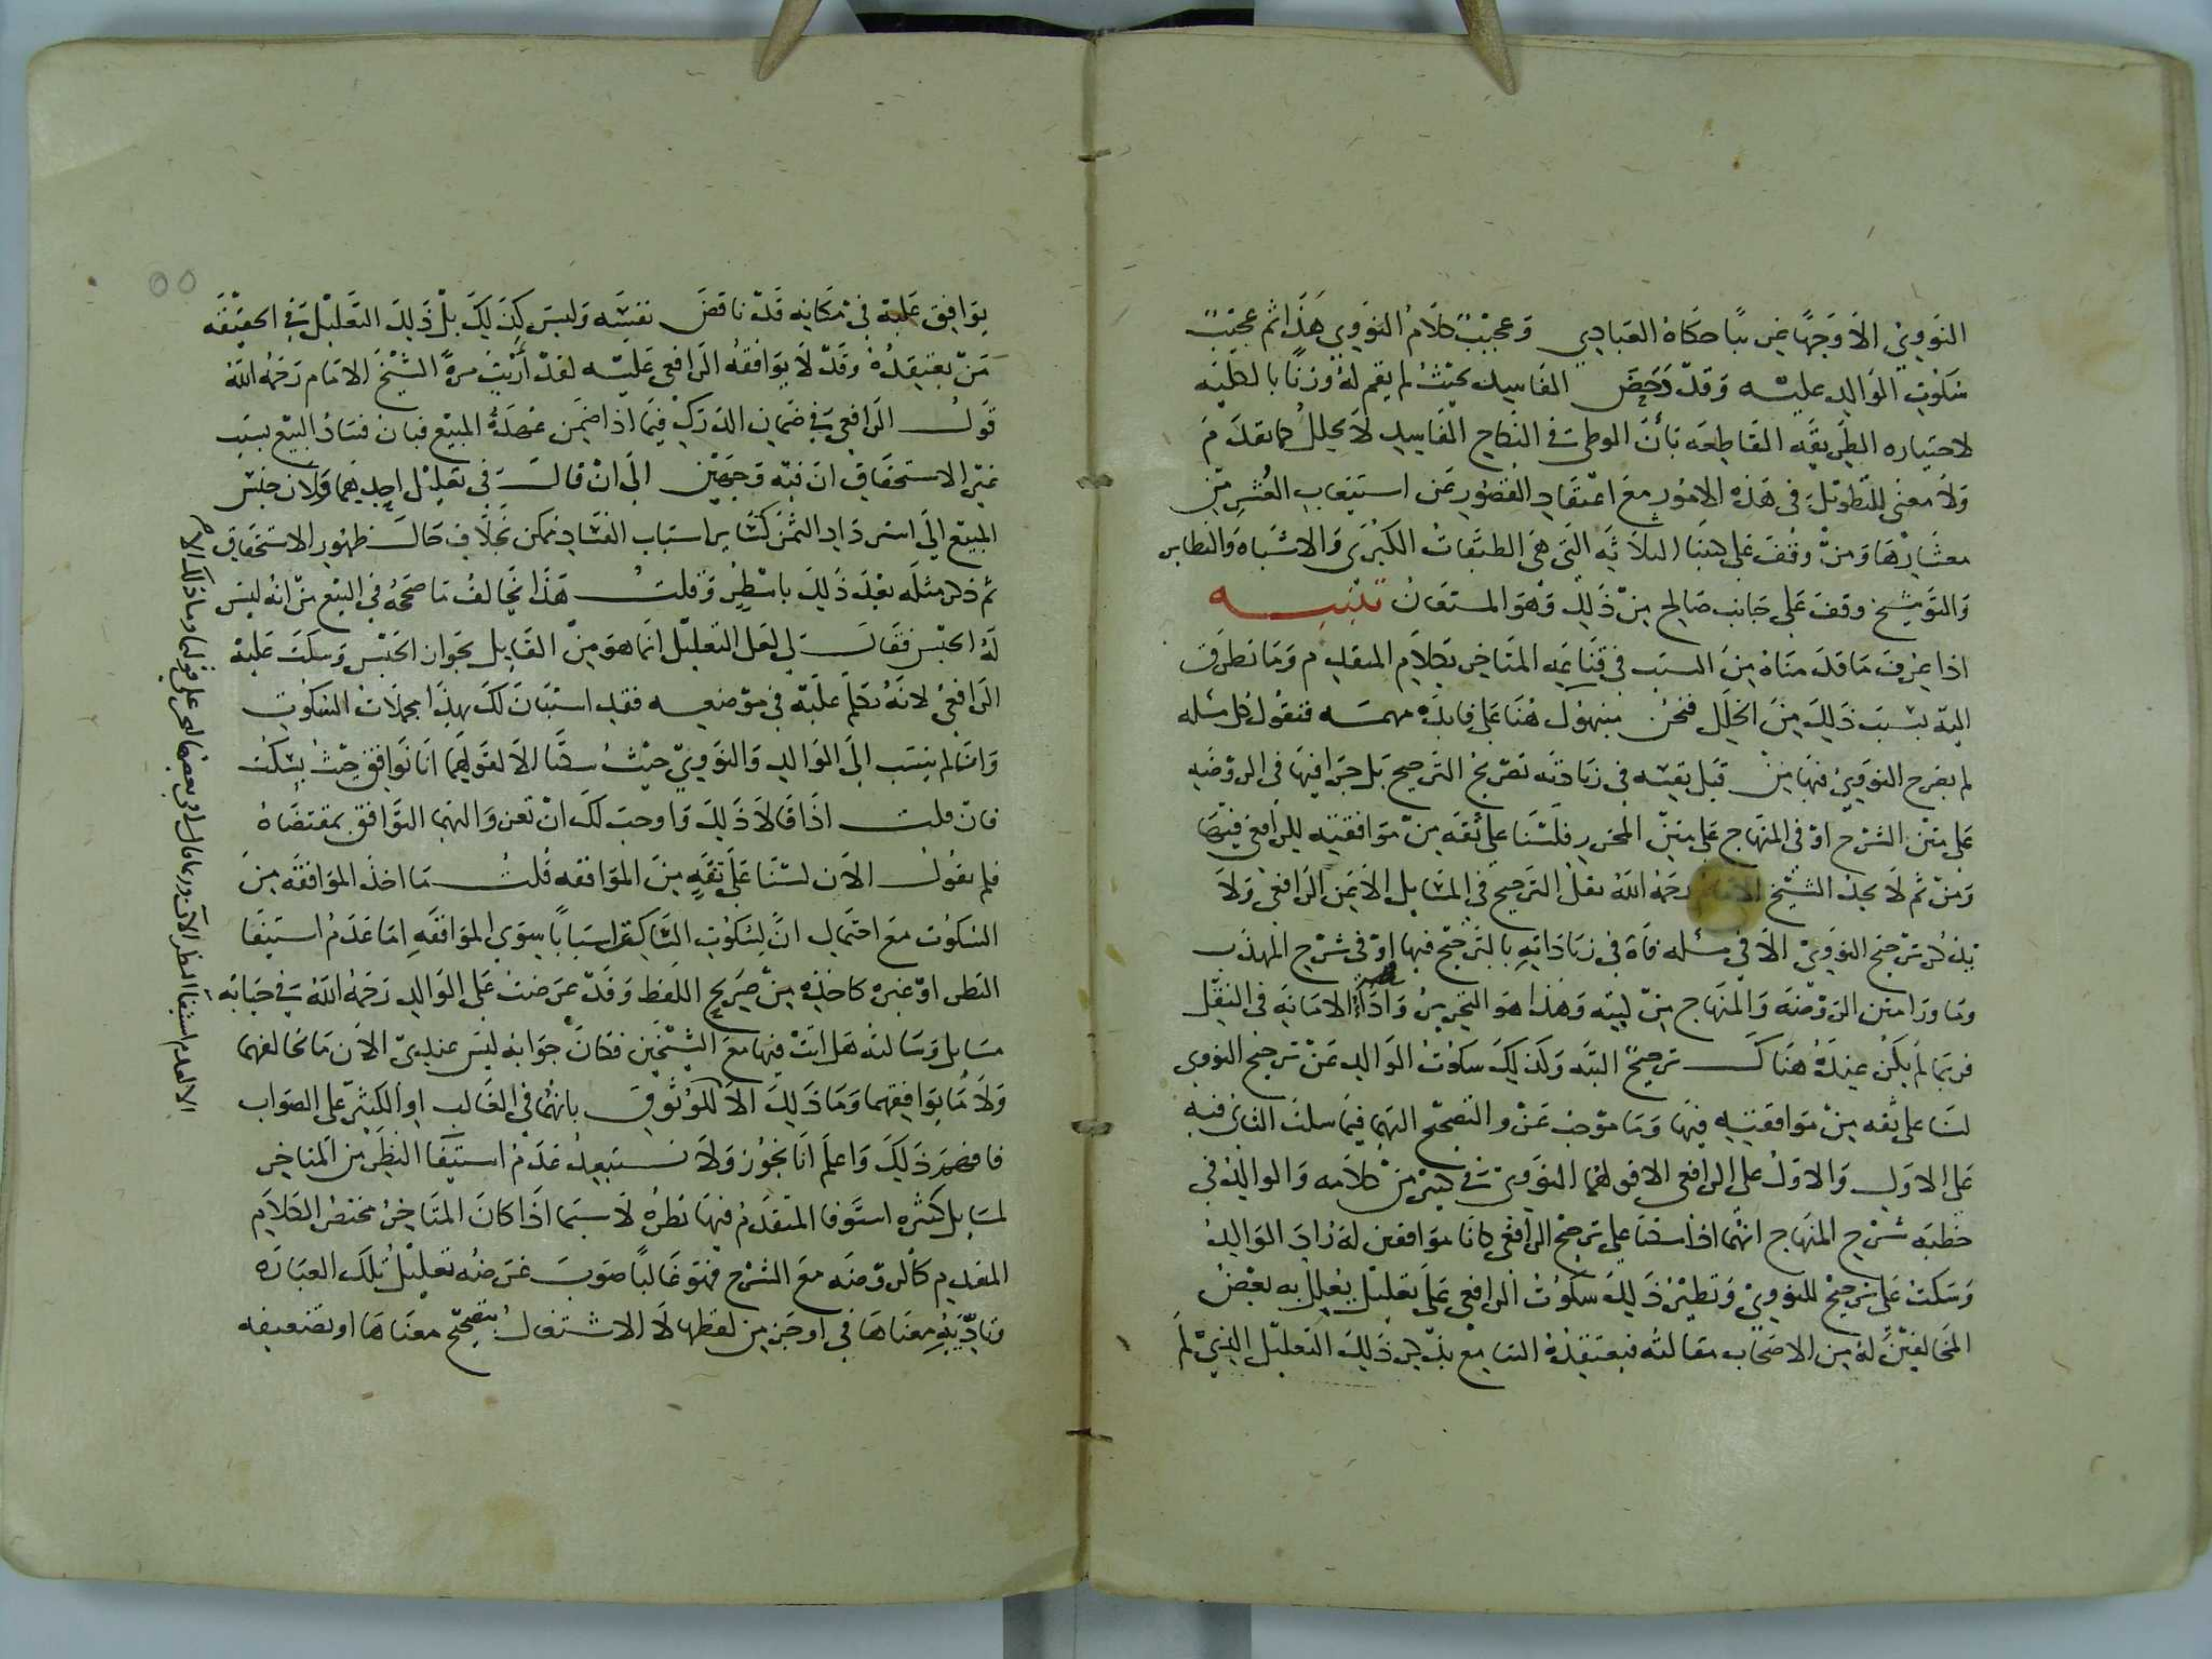 النووي الا وجها غريبا حكاه العبادي وعجبت كلام النووي هذا ثم عجبت
سكوت الوالد عليه وقد دحض الفاسد بحيث لم يقم له وزنا بالكليه
لاختياره الطريقه القاطعه بأن الوطى في النكاح الفاسد لا يحلل كما تقدم
ولا معنى للتطويل في هذه الامور مع اعتقاد القصور عن استيعاب العشر من
معشارها ومن وقف على كتبنا الثلاثه التي هي الطبقات الكبرى والاشباه والنظاير
والتوشيخ وقف على جانب صالح من ذلك وهو المستعان تنبيه
اذا عرفت ما قدمناه من السبب في قناعه المتاخر بكلام المتقدم وما تطرق
اليه بسبب ذلك من الخلل فنحن منبهوك هنا على فايده مهمه فنقول كل مسله
لم يصرح النووي فيها من قبل نفسه في زياداته تصريح الترجيح بل جرا فيها في الروضه
على متن الشرح او في المنهاج على متن المحرر فلسنا على ثقه من موافقته للرافعي فيها
ومن ثم لا تجد الشيخ الامام رحمه الله ينقل الترجيح في المسايل الا عن الرافعي ولا
يذكر ترجيح النووي الا في مسله فاه في زياداته بالترجيح فيها او في شرح المهذب
وما ورا متن الروضه والمنهاج من كتبه وهذا هو التحرير واداء الامانه في النقل
فربما لم يكن عنده هناك ترجيح البته وكذلك سكوت الوالد عن ترجيح النووي
لسنا على ثقه من موافقته فيها وما موجب عزو التصحيح اليهما فيما سكت الثاني فيه
على الاول والاول على الرافعي الا قولهما النووي في كثير من كلامه والوالد في
خطبه شرح المنهاج انهما اذا سكتا على ترجيح الرافعي كانا موافقين له زاد الوالد
وسكت على ترجيح للنووي ونظير ذلك سكوت الرافعي على تعليل يعلل به بعض
المخالفين له من الاصحاب مقالته فيعتقده السامع يذكر ذلك التعليل الذي لم
يوافق عليه في مكانه قد ناقض نفسه وليس كذلك بل ذلك التعليل في الحقيقه
من يعتقده وقد لا يوافقه الرافعي عليه لقد أريت مرة الشيخ الامام رحمه الله
قول الرافعي في ضمان الدرك فيما اذا ضمن عهدة المبيع فبان فساد البيع بسبب
غير الاستحقاق ان فيه وجهين الى ان قال في تعليل احدهما ولان حبس
المبيع الى استرداد الثمن كساير اسباب الفساد ممكن بخلاف حال ظهور الاستحقاق
ثم ذكر مثله بعد ذلك باسطر وقلت هذا يخالف ما صححه في البيع من انه ليس
له الحبس فقال لي لعل التعليل انما هو من القايل بجواز الحبس وسكت عليه
الرافعي لانه تكلم عليه في موضعه فقد استبان لك بهذا مجملات السكوت
وانا لم ينسب الى الوالد والنووي حيث سكتا الا لقولهما انا نوافق حيث نسكت
فان قلت اذا قالا ذلك واوجب لك ان تعزو اليهما التوافق بمقتضاه
فلم تقول الان لسنا على ثقه من الموافقه قلت ما اخذ الموافقه من
السكوت مع احتمال ان لسكوت الساكت اسبابا سوى الموافقه اما عدم استيفا
النظر او غيره كاخذه من صريح اللفظ وقد عرضت على الوالد رحمه الله في حياته
مسايل وسالته هل انت فيها مع الشيخين فكان جوابه ليس عندي الان ما يخالفهما
ولا ما يوافقهما وما ذلك الا للوثوق بانهما في الغالب او الكثير على الصواب
فافهم ذلك واعلم انا نجوز ولا نستبعد عدم استيفا النظر من المتاخر
لمسايل كثيره استوفا المتقدم فيها نظره لا سيما اذا كان المتاخر مختصر الكلام
المتقدم كالروضه مع الشرح فهو غالبا صوب غرضه تعليل تلك العباره
وتاديه معناها في اوجز من لفظها لا الاشتغال بتصحيح معناها او تضعيفه